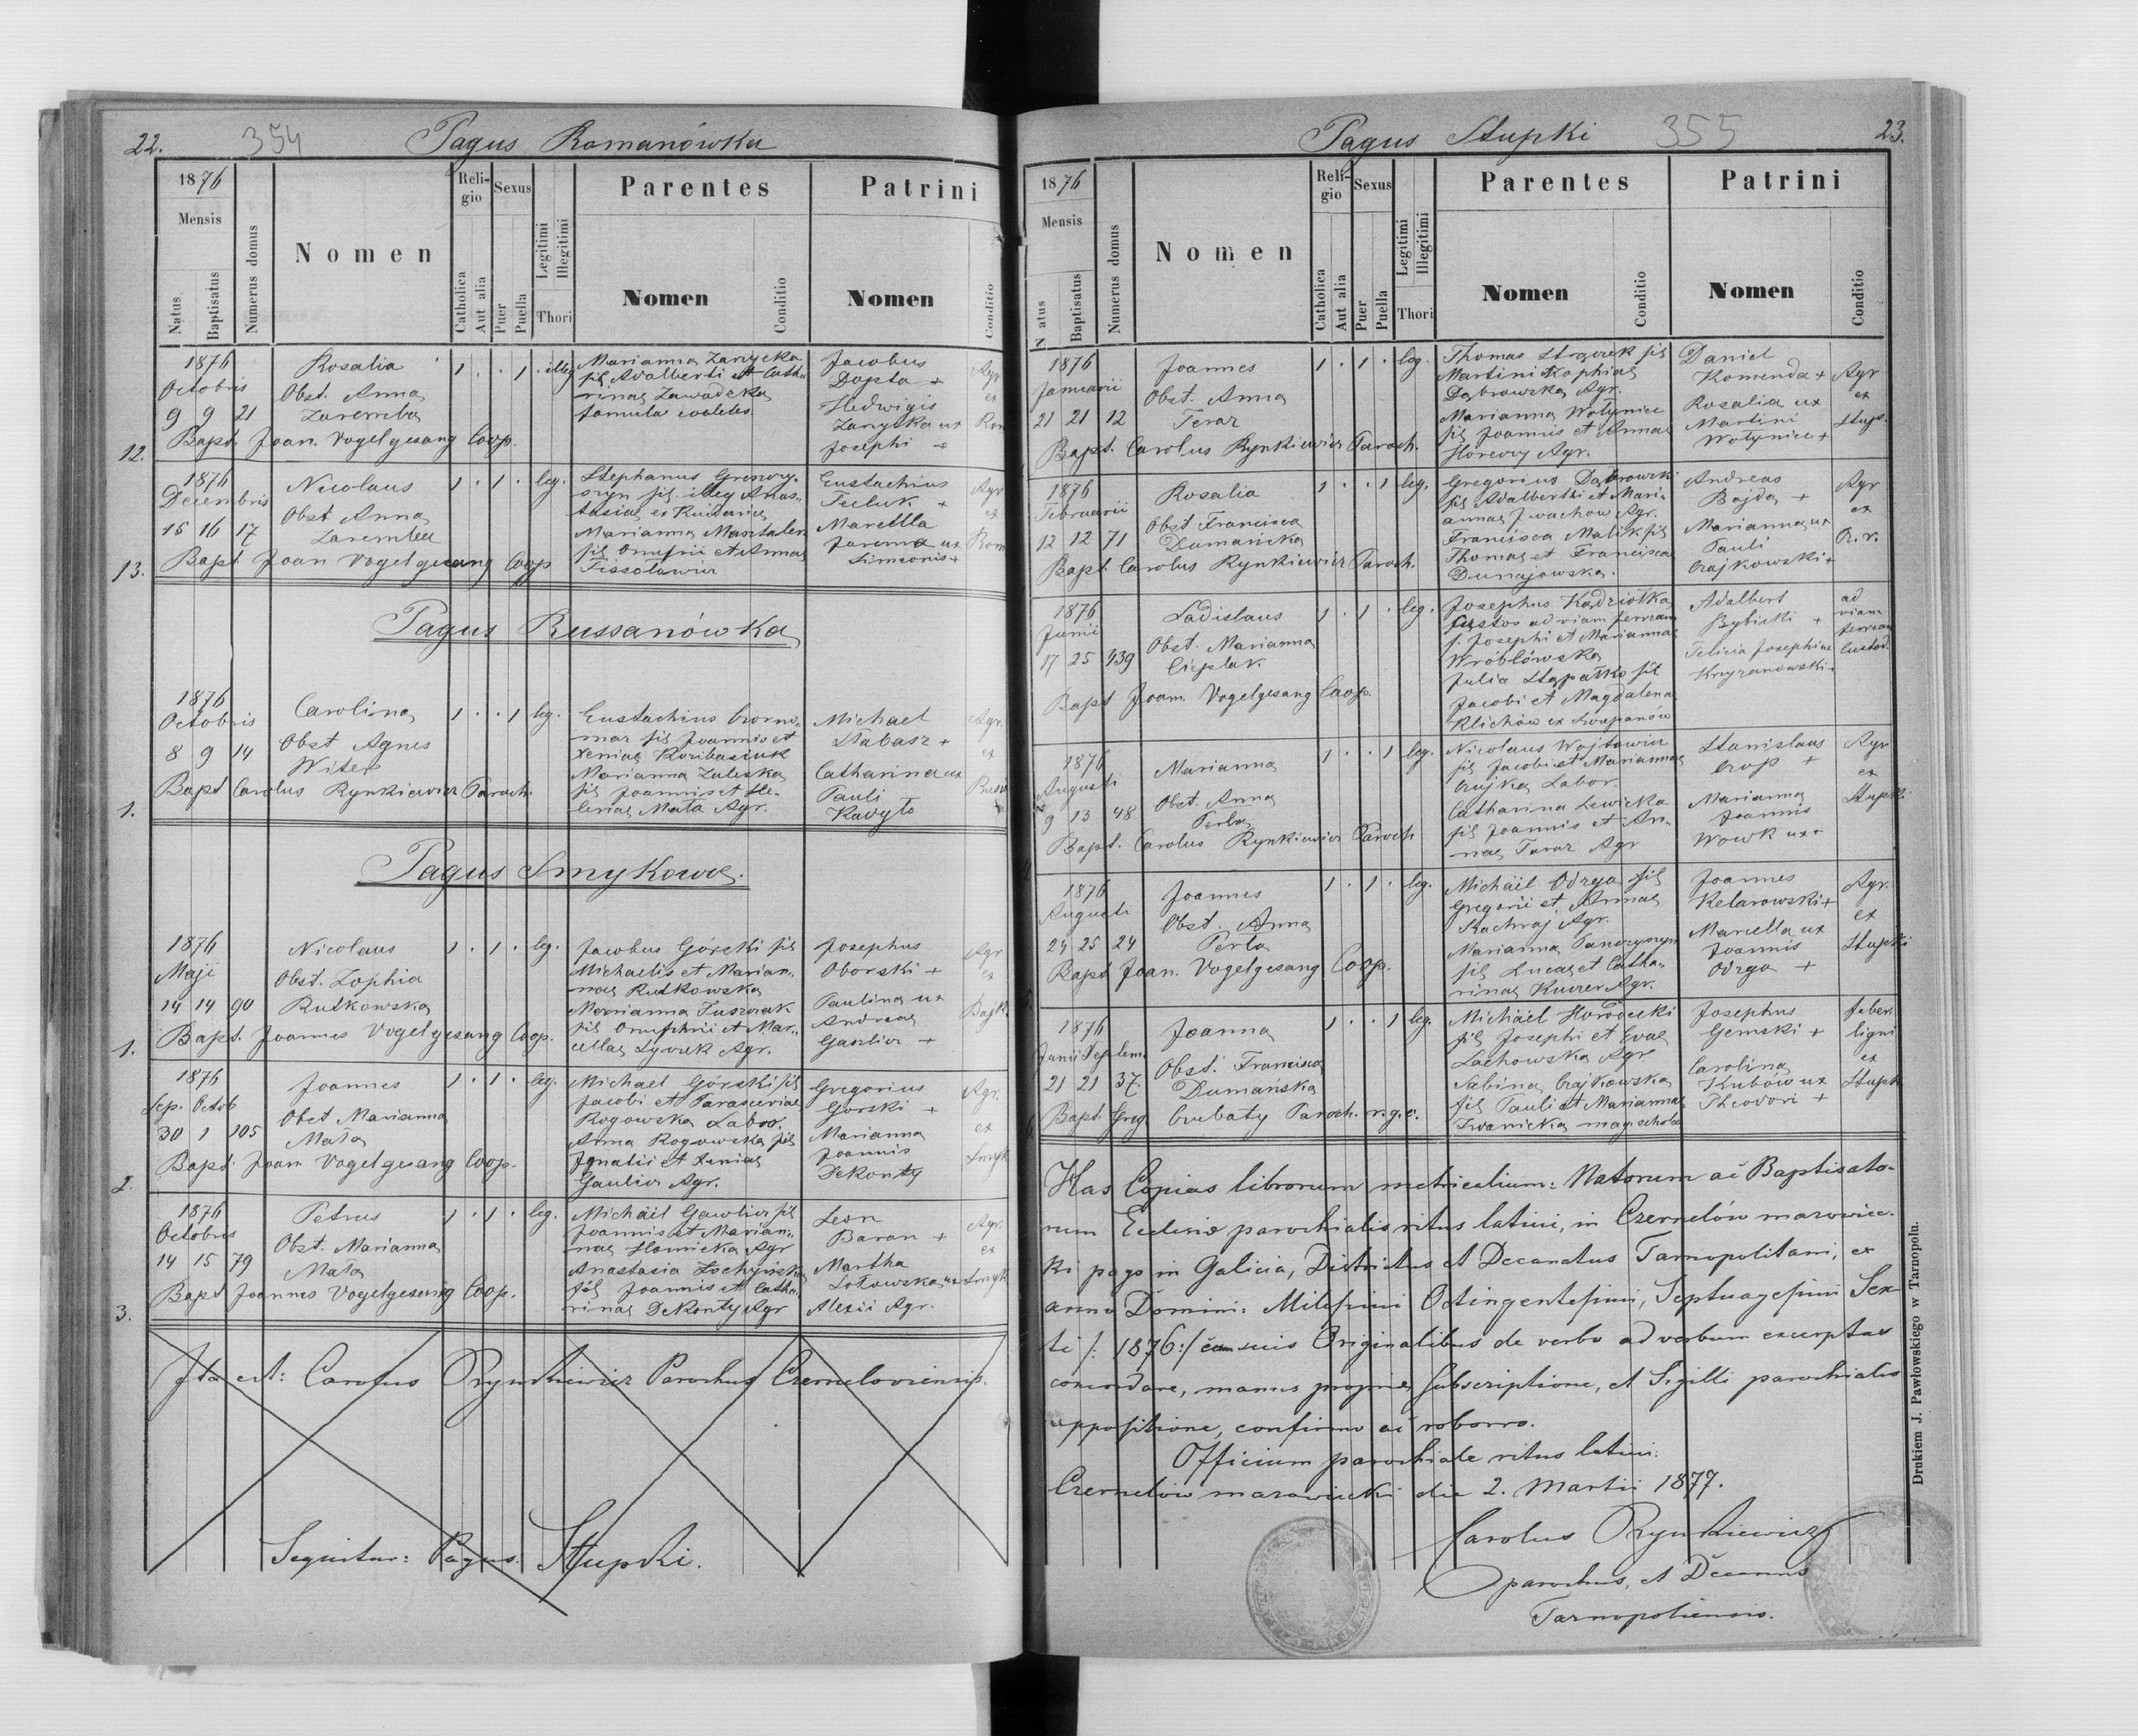 22. 354 Pagus Romanówka
1876 Mensis Natus Baptisatus Numerus domus Nomen Religio Catholica Aut alia Sexus Puer Puella Legitimi Illegitimi Thori Parentes Nomen Conditio Patrini Nomen Conditio
12.
1876
Octobris
9 9 21
Rosalia
Obst. Anna
Zaremba
1 . . 1 illeg
Marianna Zarycka
fil Adalberti et Catha
rinae Zawadzka
famula coelebs
Jacobus
Dopta +
Hedwigis
Zarytka ux
Josephi +
Agr
ex
Rom
Bapt. Joan. Vogelgesang Coop.
13.
1876
Decembris
16 16 17
Nicolaus
Obst Anna
Zaremba
1 . 1 . leg.
Stephanus
fil illeg Anas-
tasiae
Marianna
fil Onufrii et Annae
Eustachius
+
Marella
Jarema ux
Simeonis +
Agr
ex
Rom
Bapt Joan Vogelgesang Coop
Pagus Russanówka
1.
1876
Octobris
8 9 14
Carolina
Obst Agnes
Witer
1 . . 1 leg.
Eustachius Czorno-
maz fil Joannis et
Xeniae
Marianna Zaleska
fil Joannis et He-
lenae Mata Agr.
Michael
+
Catharina ux
Pauli
Agr.
ex
Bapt Carolus Rynkiewicz Paroch.
Pagus Smykowce
1.
1876
Maji
14 14 90
Nicolaus
Obst. Zophia
Rutkowska
1 . 1 . leg.
Jacobus Górski fil
Michaelis et Marian-
nae Rutkowska
Marianna
fil Onuphrii et Mar-
cellae Agr.
Josephus
Oborski +
Paulina ux
Andreae
Gaulicz +
Agr
ex
Bapt. Joannes Vogelgesang Coop.
2.
1876
Sep. Octob
30 1 105
Joannes
Obst Marianna
Mata
1 . 1 . leg.
Michael Górski fil
Jacobi et Parasceviae
Rogowska Labor.
Anna Rogowska fil
Ignatii et Xeniae
Gaulicz Agr.
Gregorius
Górski +
Marianna
Joannis
Dekonty
Agr.
ex
Smyk
Bapt. Joan Vogelgesang Coop.
3.
1876
Octobris
14 15 79
Petrus
Obst. Marianna
Mata
1 . 1 . leg.
Michaël Gawlicz fil
Joannis et Marian-
nae Agr
Anastasia
fil Joannis et Catha-
rinae Dekonty Agr
Leon
Baran +
Martha
ux
Alexii Agr.
Agr.
ex
Smyk
Bapt Joannes Vogelgesang Coop.
Ita est: Carolus Rynkiewicz Parochus Czerneloviensis.
Sequitur: Pagus Stupki.
Pagus Stupki 355 23.
1876 Mensis Natus Baptisatus Numerus domus Nomen Religio Catholica Aut alia Sexus Puer Puella Legitimi Illegitimi Thori Parentes Nomen Conditio Patrini Nomen Conditio
1876
Januarii
21 21 12
Joannes
Obst. Anna
1 . 1 . leg.
Thomas fil
Martini Sophiae
Dąbrowska Agr.
Marianna Wołyniec
fil Joannis et Annae
Agr.
Daniel
Komenda +
Rosalia ux
Martini
Wołyniec +
Agr
ex
Stup.
Bapt. Carolus Rynkiewicz Paroch.
1876
Februarii
12 12 71
Rosalia
Obst Francisca
Dumańska
1 . . 1 leg.
Gregorius Dąbrowski
fil Adalberti et Mari-
annae Iwachow Agr.
Francisca Malik fil
Thomae et Francisca
Dunajowska.
Andreas
Bajda +
Marianna ux
Pauli
Czajkowski +
Agr
ex
Bapt. Carolus Rynkiewicz Paroch.
1876
Junii
17 25 439
Ladislaus
Obst. Marianna
Cieplak
1 . 1 . leg.
Josephus Kądziołka
custos ad viam ferream
f. Josephi et Marianna
Wróblówska
Julia fil
Jacobi et Magdalena
Klichów ex
Adalbert
Rybicki +
Felicia Josephinae
ad
viam
ferream
Custod.
Bapt Joan. Vogelgesang Coop.
1876
Augusti
9 13 48
Marianna
Obst. Anna
Perla
1 . . 1 leg.
Nicolaus Wojtowicz
fil Jacobi et Mariannae
Czujka Labor.
Catharina Lewicka
fil Joannis et An-
nae Agr
Stanislaus
Czop +
Marianna
Joannis
Wowk ux +
Agr
ex
Stupki
Bapt. Carolus Rynkiewicz Paroch
1876
Augusti
24 25 24
Joannes
Obst. Anna
Perla
1 . 1 . leg.
Michaël Odrga fil
Gregorii et Annae
Kachraj Agr.
Marianna
fil Lucae et Catha-
rinae Agr.
Joannes
Kelarowski +
Marcella ux
Joannis
Odrga +
Agr.
ex
Stupki
Bapt Joan. Vogelgesang Coop.
1876
Junii Septem.
21 21 37
Joanna
Obst. Francisca
Dumańska
1 . . 1 leg.
Michaël Horodecki
fil Josephi et Evae
Lachowska Agr
Sabina Czajkowska
fil Pauli et Mariannae
Iwanicka
Josephus
Gemski +
Carolina
Kubów ux
Theodori +
faber
ligni
ex
Stupk
Bapt Greg Czubaty Paroch. r.g.c.
Has Copias librorum metricalium: Natorum ac Baptisato-
rum Ecclesiae parochialis ritus latini, in Czernelów mazowiec-
ki pago in Galicia, Districtus et Decanatus Tarnopolitani, ex
anno Domini: Milesimi Octingentesimi, Septuagesimi Sex-
ti /: 1876:/ cum suis Originalibus de verbo ad verbum excerptas
concordare, manus propriae subscriptione, et Sigilli parochialis
appositione, confirmo ac roborro.
Officium parochiale ritus latini.
Czernelów mazowiecki die 2. Martii 1877.
Carolus Rynkiewicz
parochus, et Decanus
Tarnopoliensis.
Drukiem J. Pawłowskiego w Tarnopolu.